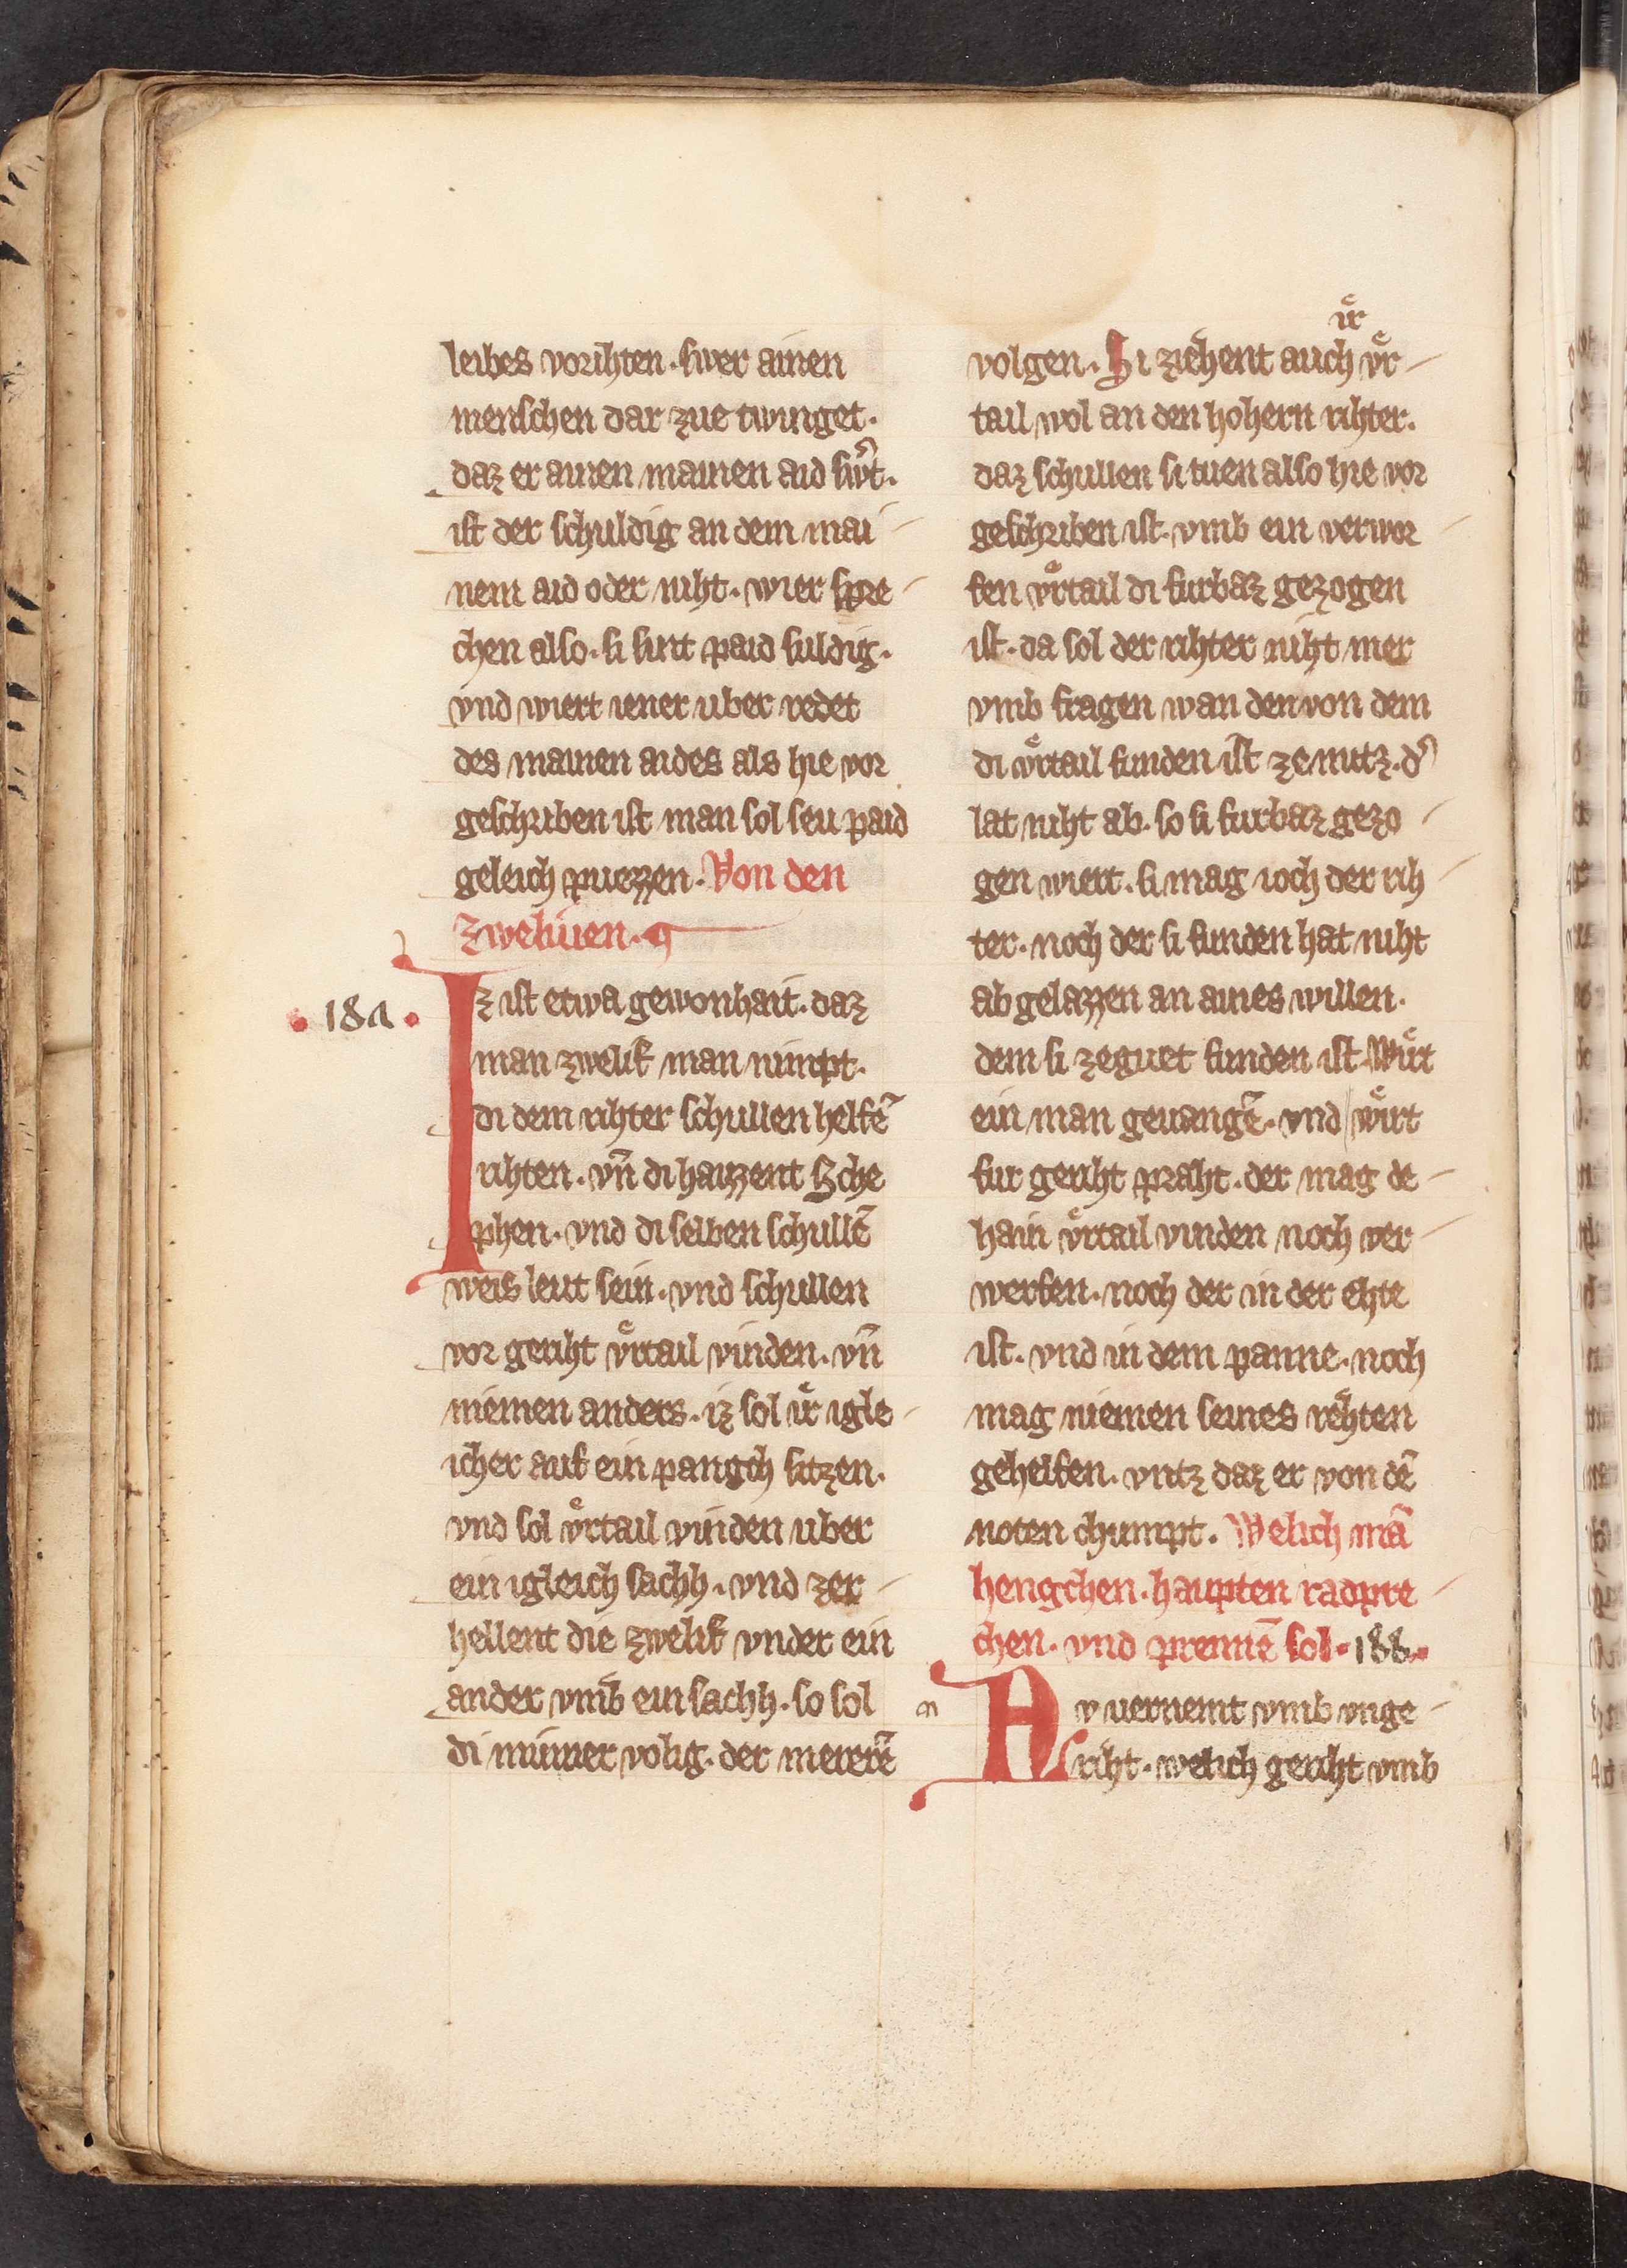 leibes vorihten. swer ainen
menschen dar zue twinget.
daz er ainen mainen aid swͤt.
ist der schuldig an dem mai-
nem aid oder niht. wier spre-
chen also. si sint paid suldig.
vnd wiert iener uber redet
des mainen aides als hie vor
geschriben ist man sol seu paid
geleich puezzen. Von den
Zweliuen.
.18a.
Iz ist etwa gewonhait. daz
man zwelif man nimpt.
di dem rihter schullen helfē
rihten. vn̄ di haizzent Sche
phen. vnd di selben schullē
weis leut sein. vnd schullen
vor geriht vͤrtail vinden. vn̄
niemen anders. iz sol iͤr igle-
icher auf ein pangch sitzen.
vnd sol vͤrtail vinden uber
ein igleich sachh. vnd zer-
hellent die zwelif vnder ein
ander vmb ein sachh. so sol
di minner volig. der mererē
iͤr
volgen. Si ziehent auch vͤr-
tail wol an den hohern rihter.
daz schullen si tuen also hie vor
geschriben ist. vmb ein verwor-
fen vͤrtail di furbaz gezogen
ist. da sol der rihter niht mer
vmb fragen wan den von dem
di vͤrtail funden ist ze nutz. d᾽
lat niht ab. so si furbaz gezo-
gen wiert. si mag ioch der rih-
ter. noch der si funden hat niht
ab gelazzen an aines willen.
dem si ze guet funden ist. Wiͤrt
ein man geuangē. vnd wiͤrt
fur geriht praht. der mag de-
hain vͤrtail vinden noch ver-
werfen. noch der in der ehte
ist. vnd in dem panne. noch
mag niemen seines rehten
gehelfen. vntz daz er von dē
noten chumpt. Welich mā
hengchen. haupten radpre-
chen. vnd prennē sol. 188.
Nv vernemt vmb vnge-
riht. welich geriht vmb